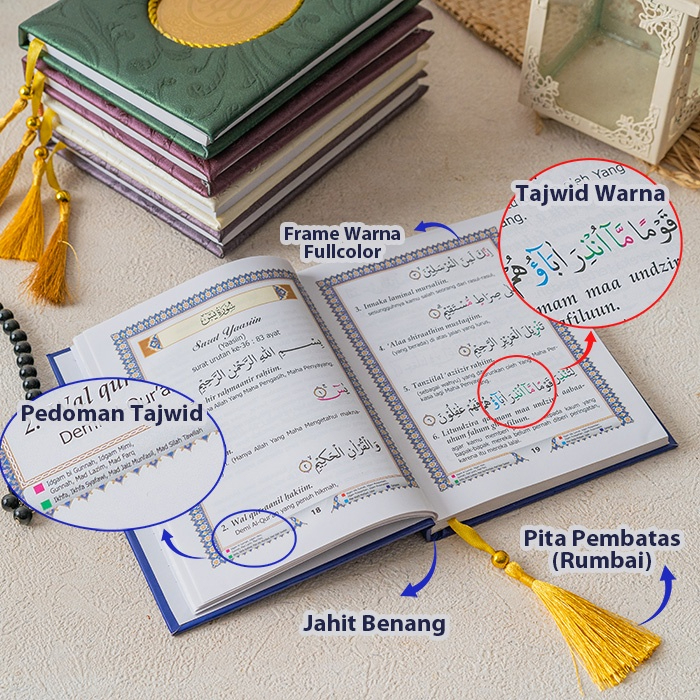 Frame Warna
Fullcolor
Tajwid Warna
Pedoman Tajwid
Jahit Benang
Pita Pembatas
(Rumbai)
قَوْمًا مَّآ اُنْذِرَ اٰبَاۤؤُ
mam maa undzir
filuun.
2. Wal qur
Demi
Qur'a
Idgam bi Gunnah, Idgam Mimi,
Gunnah, Mad Lazim, Mad Farq
Ikhfa, Ikhfa Syafawi, Mad Jaiz Munfasil, Mad Silah Tawilah
سُوْرَةُ يٰسۤ
Surat Yaasiin
(Yaasiin)
surat urutan ke-36 : 83 ayat
بِسْمِ اللّٰهِ الرَّحْمٰنِ الرَّحِيْمِ
hir rahmaanir rahiim.
Allah Yang Maha Pengasih, Maha Penyayang
يٰسۤ
(Hanya Allah Yang Maha Mengetahui makna-
وَالْقُرْاٰنِ الْحَكِيْمِ
2. Wal qur'aanil hakiim.
Demi Al-Qur'an yang penuh hikmah,
18
اِنَّكَ لَمِنَ الْمُرْسَلِيْنَ
3. Innaka laminal mursaliin.
sesungguhnya kamu salah seorang dari rasul-rasul,
عَلٰى صِرَاطٍ مُّسْتَقِيْمٍ
4. 'Alaa shiraathim mustaqiim.
(yang berada) di atas jalan yang lurus,
تَنْزِيْلَ الْعَزِيْزِ الرَّحِيْمِ
5. Tanziilal 'aziizir rahiim.
(sebagai wahyu) yang diturunkan oleh Yang Maha Per-
kasa lagi Maha Penyayang.
لِتُنْذِرَ قَوْمًا مَّآ اُنْذِرَ اٰبَاۤؤُهُمْ فَهُمْ غٰفِلُوْنَ
6. Litundzira qaumam maa undzira aabaa-
uhum fahum ghaafiluun.
agar kamu memberi peringatan kepada kaum yang
bapak-bapak mereka belum pernah diberi peringatan,
karena itu mereka lalai.
19